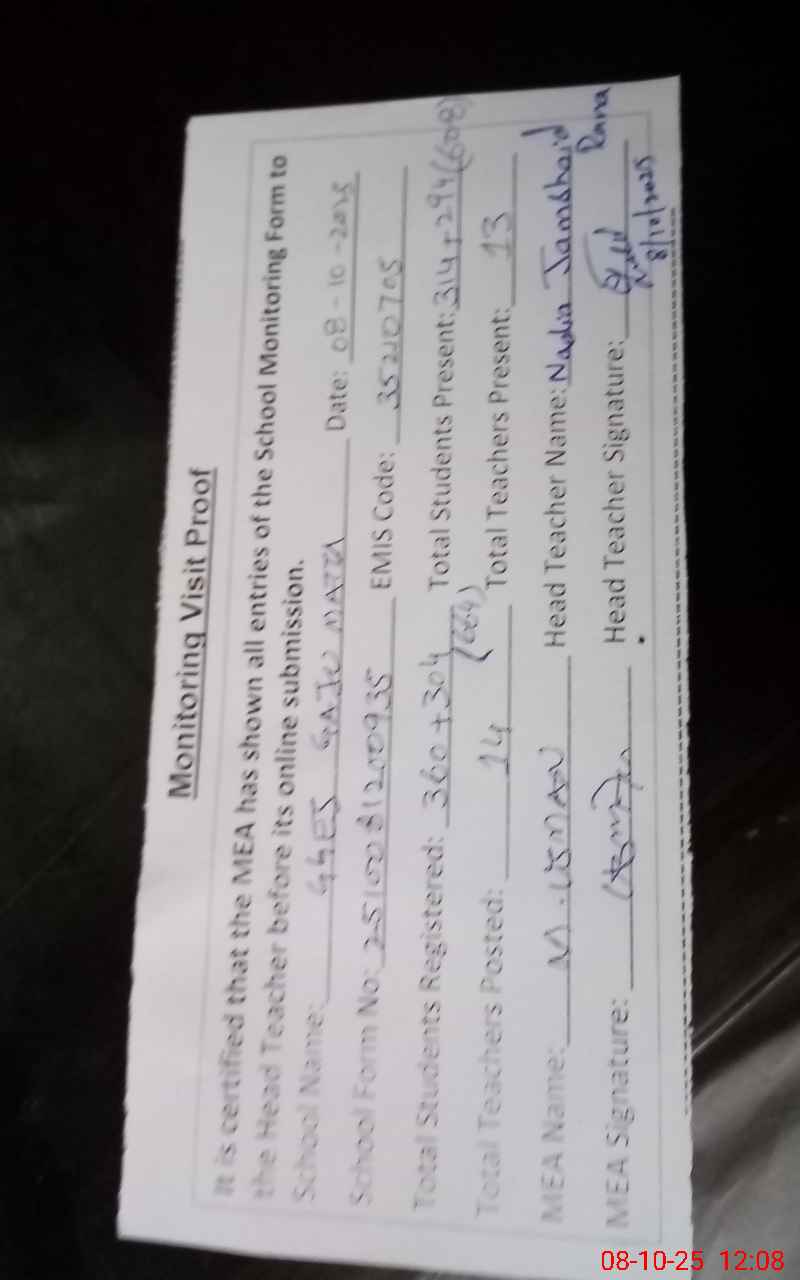 Monitoring Visit Proof
It is certified that the MEA has shown all entries of the School Monitoring Form to
the Head Teacher before its online submission.
School Name: GGES GAJU MATTA Date: 08-10-2025
School Form No: 2510081200935 EMIS Code: 35210705
Total Students Registered: 360+304 (664) Total Students Present: 314+294(608)
Total Teachers Posted: 14 Total Teachers Present: 13
MEA Name: M. USMAN Head Teacher Name: Nadia Jamshaid Rana
MEA Signature: Head Teacher Signature:
8/10/2025
08-10-25 12:08